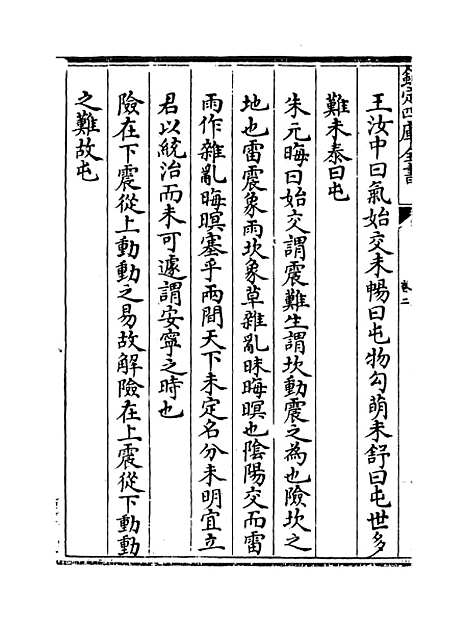 欽定四庫全書
卷二
王汝中曰氣始交未暢曰屯物勾萌未舒曰屯世多
難未泰曰屯
朱元晦曰始交謂震難生謂坎動震之為也險坎之
地也雷震象雨坎象草雜亂昧晦暝也陰陽交而雷
雨作雜亂晦暝塞乎兩間天下未定名分未明宜立
君以統治而未可遽謂安寧之時也
險在下震從上動動之易故解險在上震從下動動
之難故屯